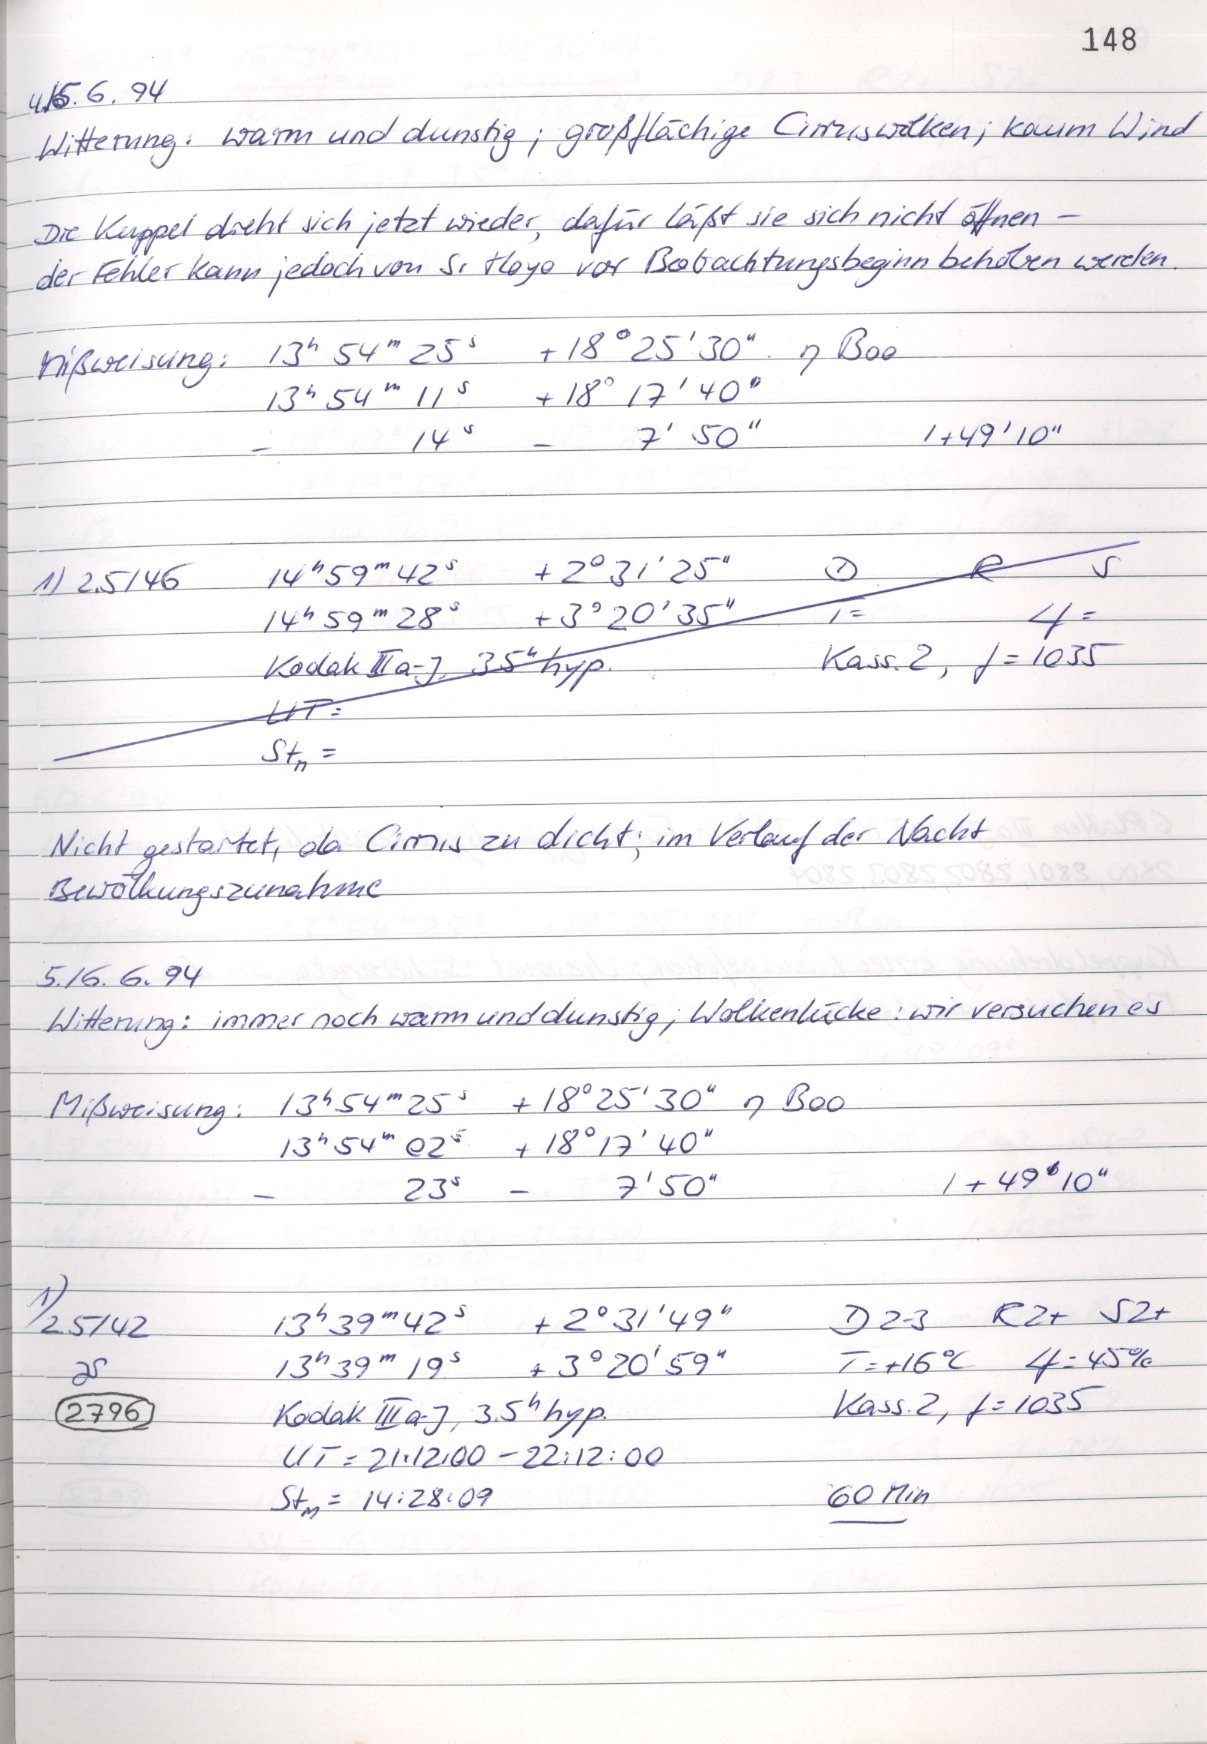 148
4./5.6.94
Witterung: warm und dunstig; großflächige Cirruswolken; kaum Wind
Die Kuppel dreht sich jetzt wieder, dafür läßt sie sich nicht öffnen –
der Fehler kann jedoch von Sr Hoyo vor Beobachtungsbeginn behoben werden.
Mißweisung: 13ʰ 54ᵐ 25ˢ +18° 25' 30" η Boo
13ʰ 54ᵐ 11ˢ +18° 17' 40"
– 14ˢ – 7' 50" 1+49'10"
1) 25/46 14ʰ 59ᵐ 42ˢ +2° 31' 25" D R S
14ʰ 59ᵐ 28ˢ +3° 20' 35" T=
Kodak IIIa-J, 3.5ʰ hyp. Kass. 2, f = 1035
UT =
Stₘ =
Nicht gestartet, da Cirrus zu dicht; im Verlauf der Nacht
Bewölkungszunahme
5./6.6.94
Witterung: immer noch warm und dunstig; Wolkenlücke: wir versuchen es
Mißweisung: 13ʰ 54ᵐ 25ˢ +18° 25' 30" η Boo
13ʰ 54ᵐ 02ˢ +18° 17' 40"
– 23ˢ – 7' 50" 1+49'10"
1)
25/42 13ʰ 39ᵐ 42ˢ +2° 31' 49" D 2-3 R 2+ S 2+
13ʰ 39ᵐ 19ˢ +3° 20' 59" T = +16°C = 45%
2796 Kodak IIIa-J, 3.5ʰ hyp. Kass. 2, f = 1035
UT = 21:12:00 – 22:12:00
Stₘ = 14:28:09 60 Min